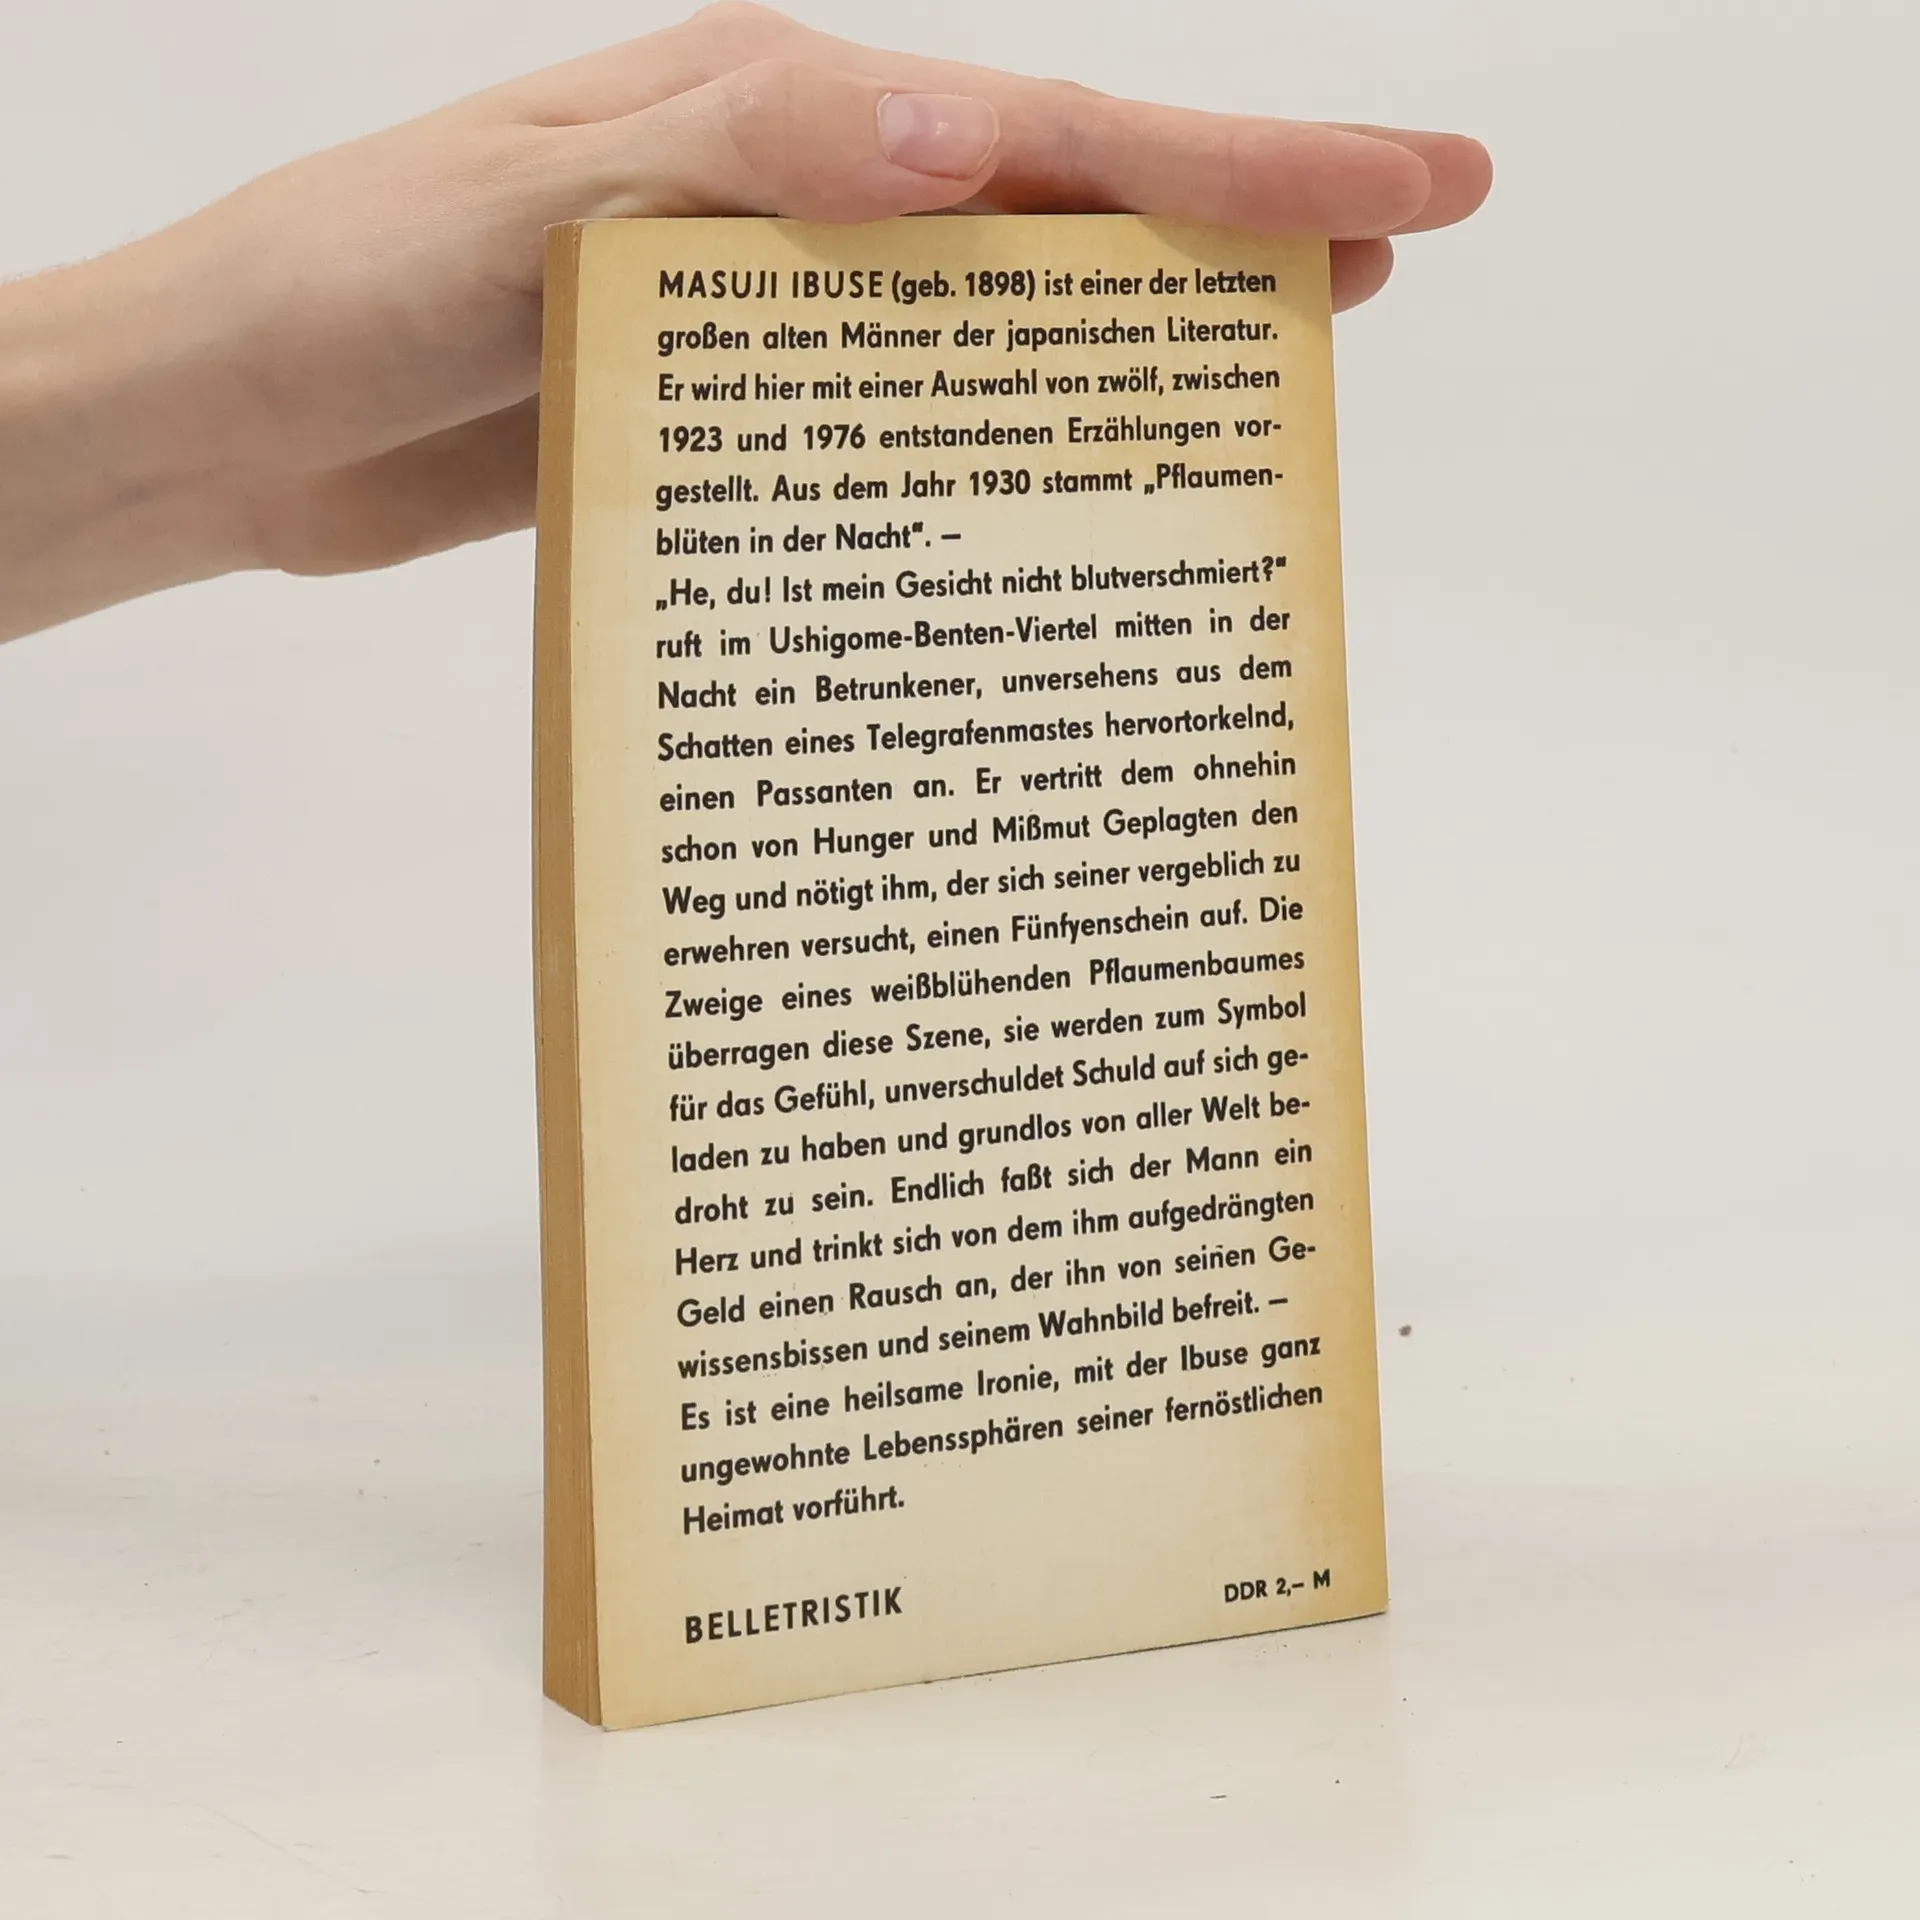 MASUJI IBUSE (geb. 1898) ist einer der letzten
großen alten Männer der japanischen Literatur.
Er wird hier mit einer Auswahl von zwölf, zwischen
1923 und 1976 entstandenen Erzählungen vor-
gestellt. Aus dem Jahr 1930 stammt „Pflaumen-
blüten in der Nacht“. –
„He, du! Ist mein Gesicht nicht blutverschmiert?“
ruft im Ushigome-Benten-Viertel mitten in der
Nacht ein Betrunkener, unversehens aus dem
Schatten eines Telegrafenmastes hervortorkelnd,
einen Passanten an. Er vertritt dem ohnehin
schon von Hunger und Mißmut Geplagten den
Weg und nötigt ihm, der sich seiner vergeblich zu
erwehren versucht, einen Fünfyenschein auf. Die
Zweige eines weißblühenden Pflaumenbaumes
überragen diese Szene, sie werden zum Symbol
für das Gefühl, unverschuldet Schuld auf sich ge-
laden zu haben und grundlos von aller Welt be-
droht zu sein. Endlich faßt sich der Mann ein
Herz und trinkt sich von dem ihm aufgedrängten
Geld einen Rausch an, der ihn von seinen Ge-
wissensbissen und seinem Wahnbild befreit. –
Es ist eine heilsame Ironie, mit der Ibuse ganz
ungewohnte Lebenssphären seiner fernöstlichen
Heimat vorführt.
BELLETRISTIK
DDR 2,– M